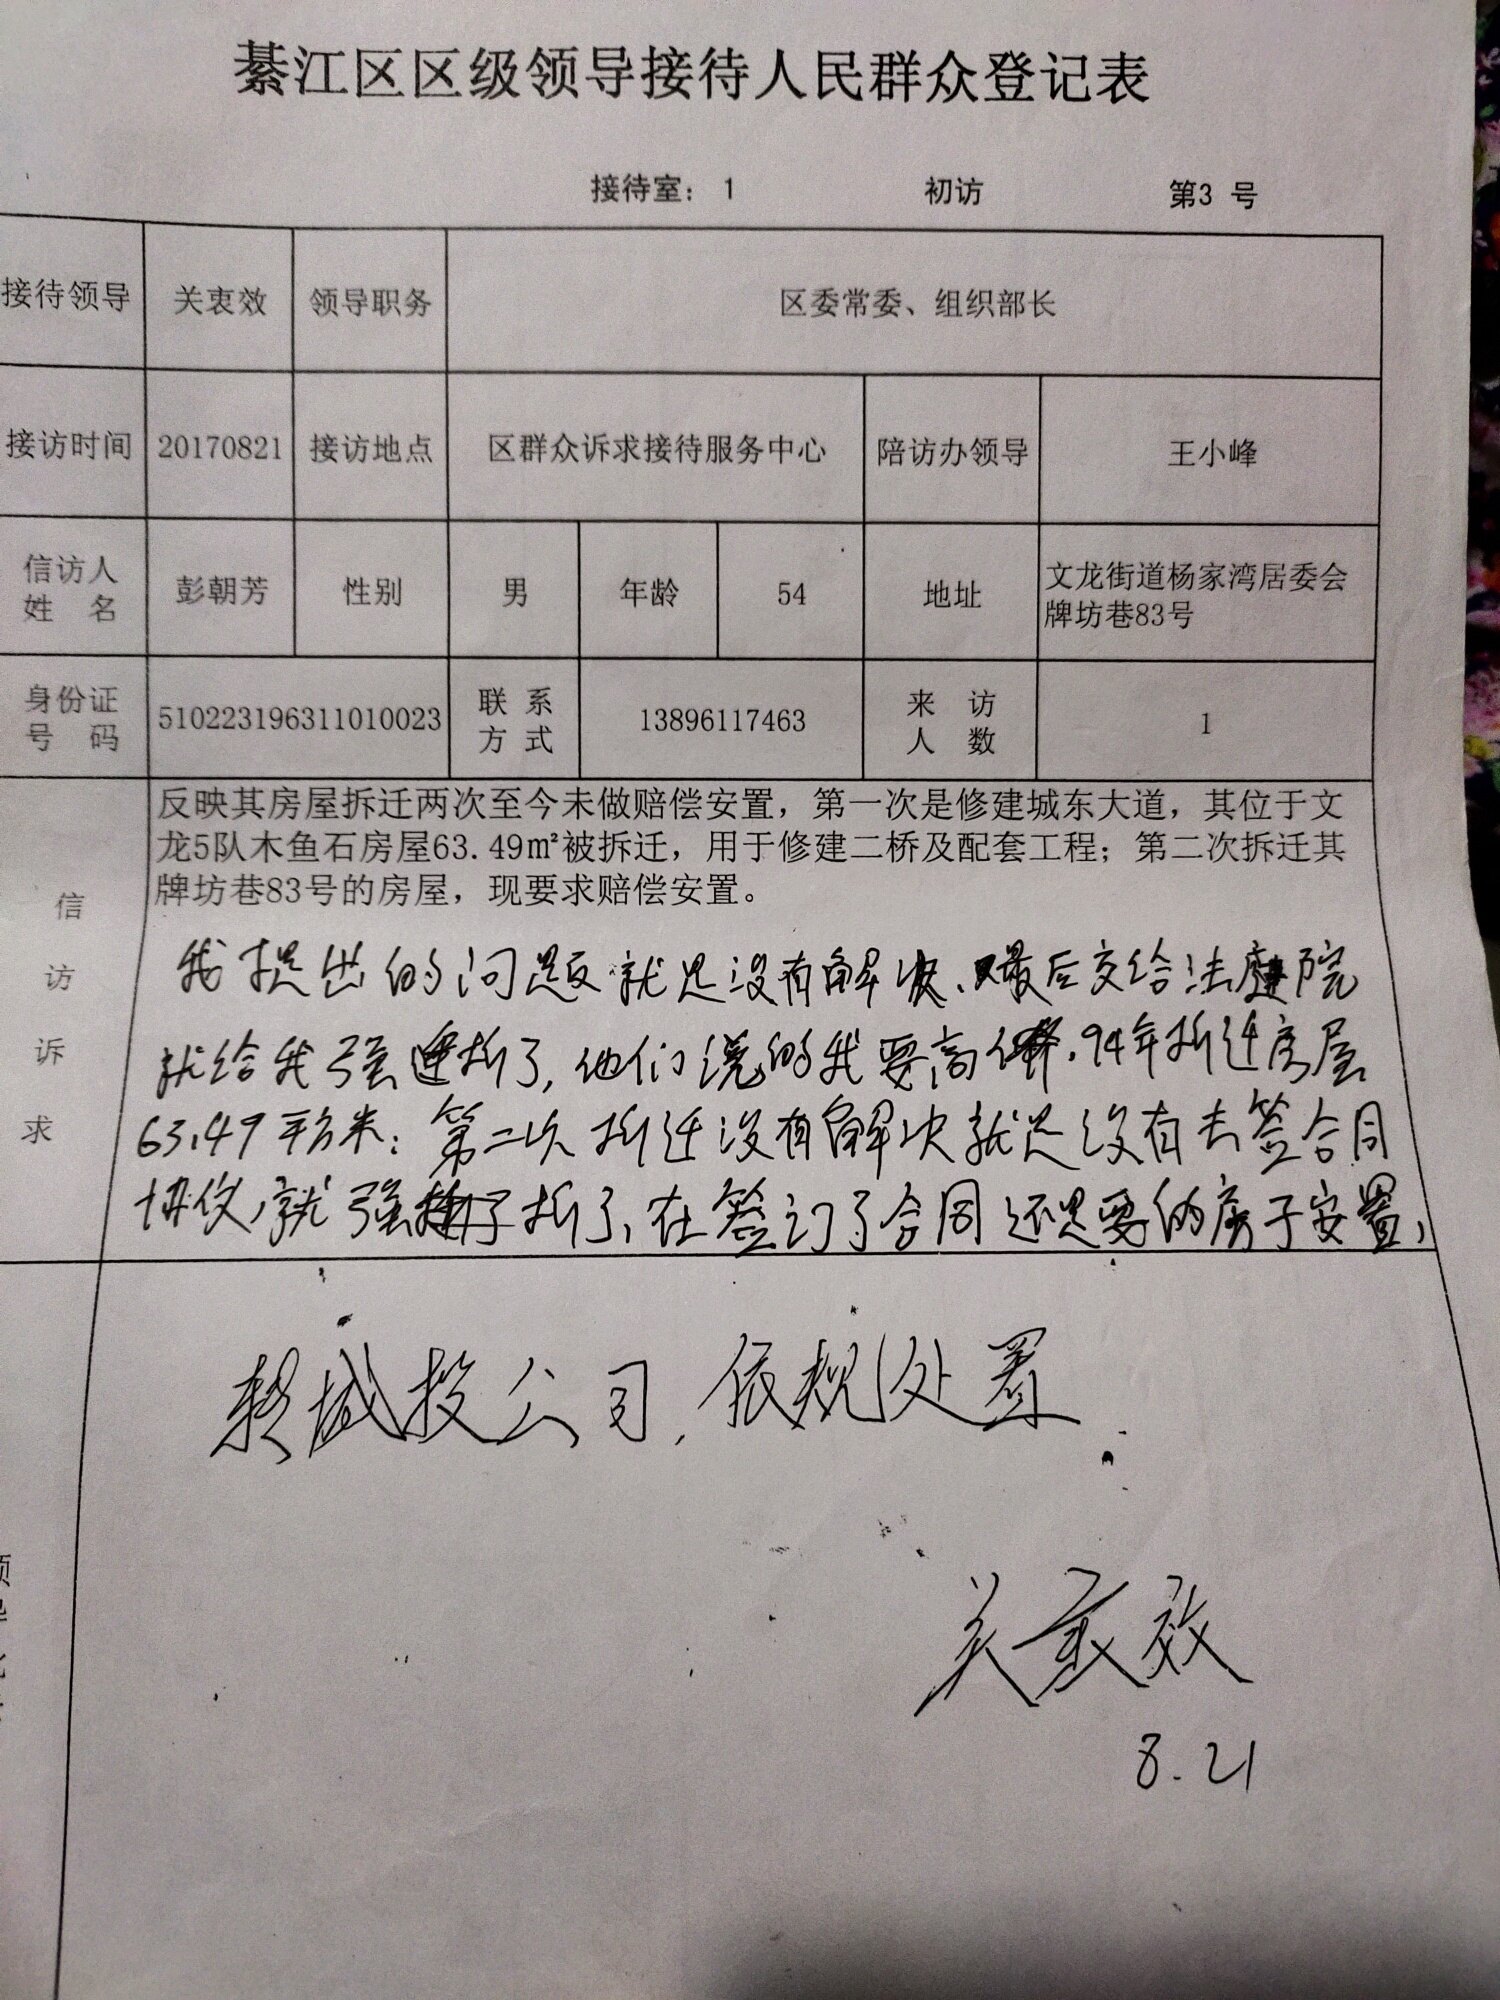 綦江区区级领导接待人民群众登记表
接待室： 1 初访 第3 号
接待领导 关衷效 领导职务 区委常委、组织部长
接访时间 20170821 接访地点 区群众诉求接待服务中心 陪访办领导 王小峰
信访人
姓 名 彭朝芳 性别 男 年龄 54 地址 文龙街道杨家湾居委会
牌坊巷83号
身份证
号 码 510223196311010023 联 系
方 式 13896117463 来 访
人 数 1
信访诉求
反映其房屋拆迁两次至今未做赔偿安置，第一次是修建城东大道，其位于文
龙5队木鱼石房屋63.49㎡被拆迁，用于修建二桥及配套工程；第二次拆迁其
牌坊巷83号的房屋，现要求赔偿安置。
我提出的问题就是没有解决、最后交给法院
就给我强拆了，他们说的我要高价.94年拆迁房屋
63.49平方米：第二次拆迁没有解决就是没有去签合同
协仪，就强拆了，在签订了合同还是要的房子安置，
转城投公司，依规处置.
关衷效
8.21